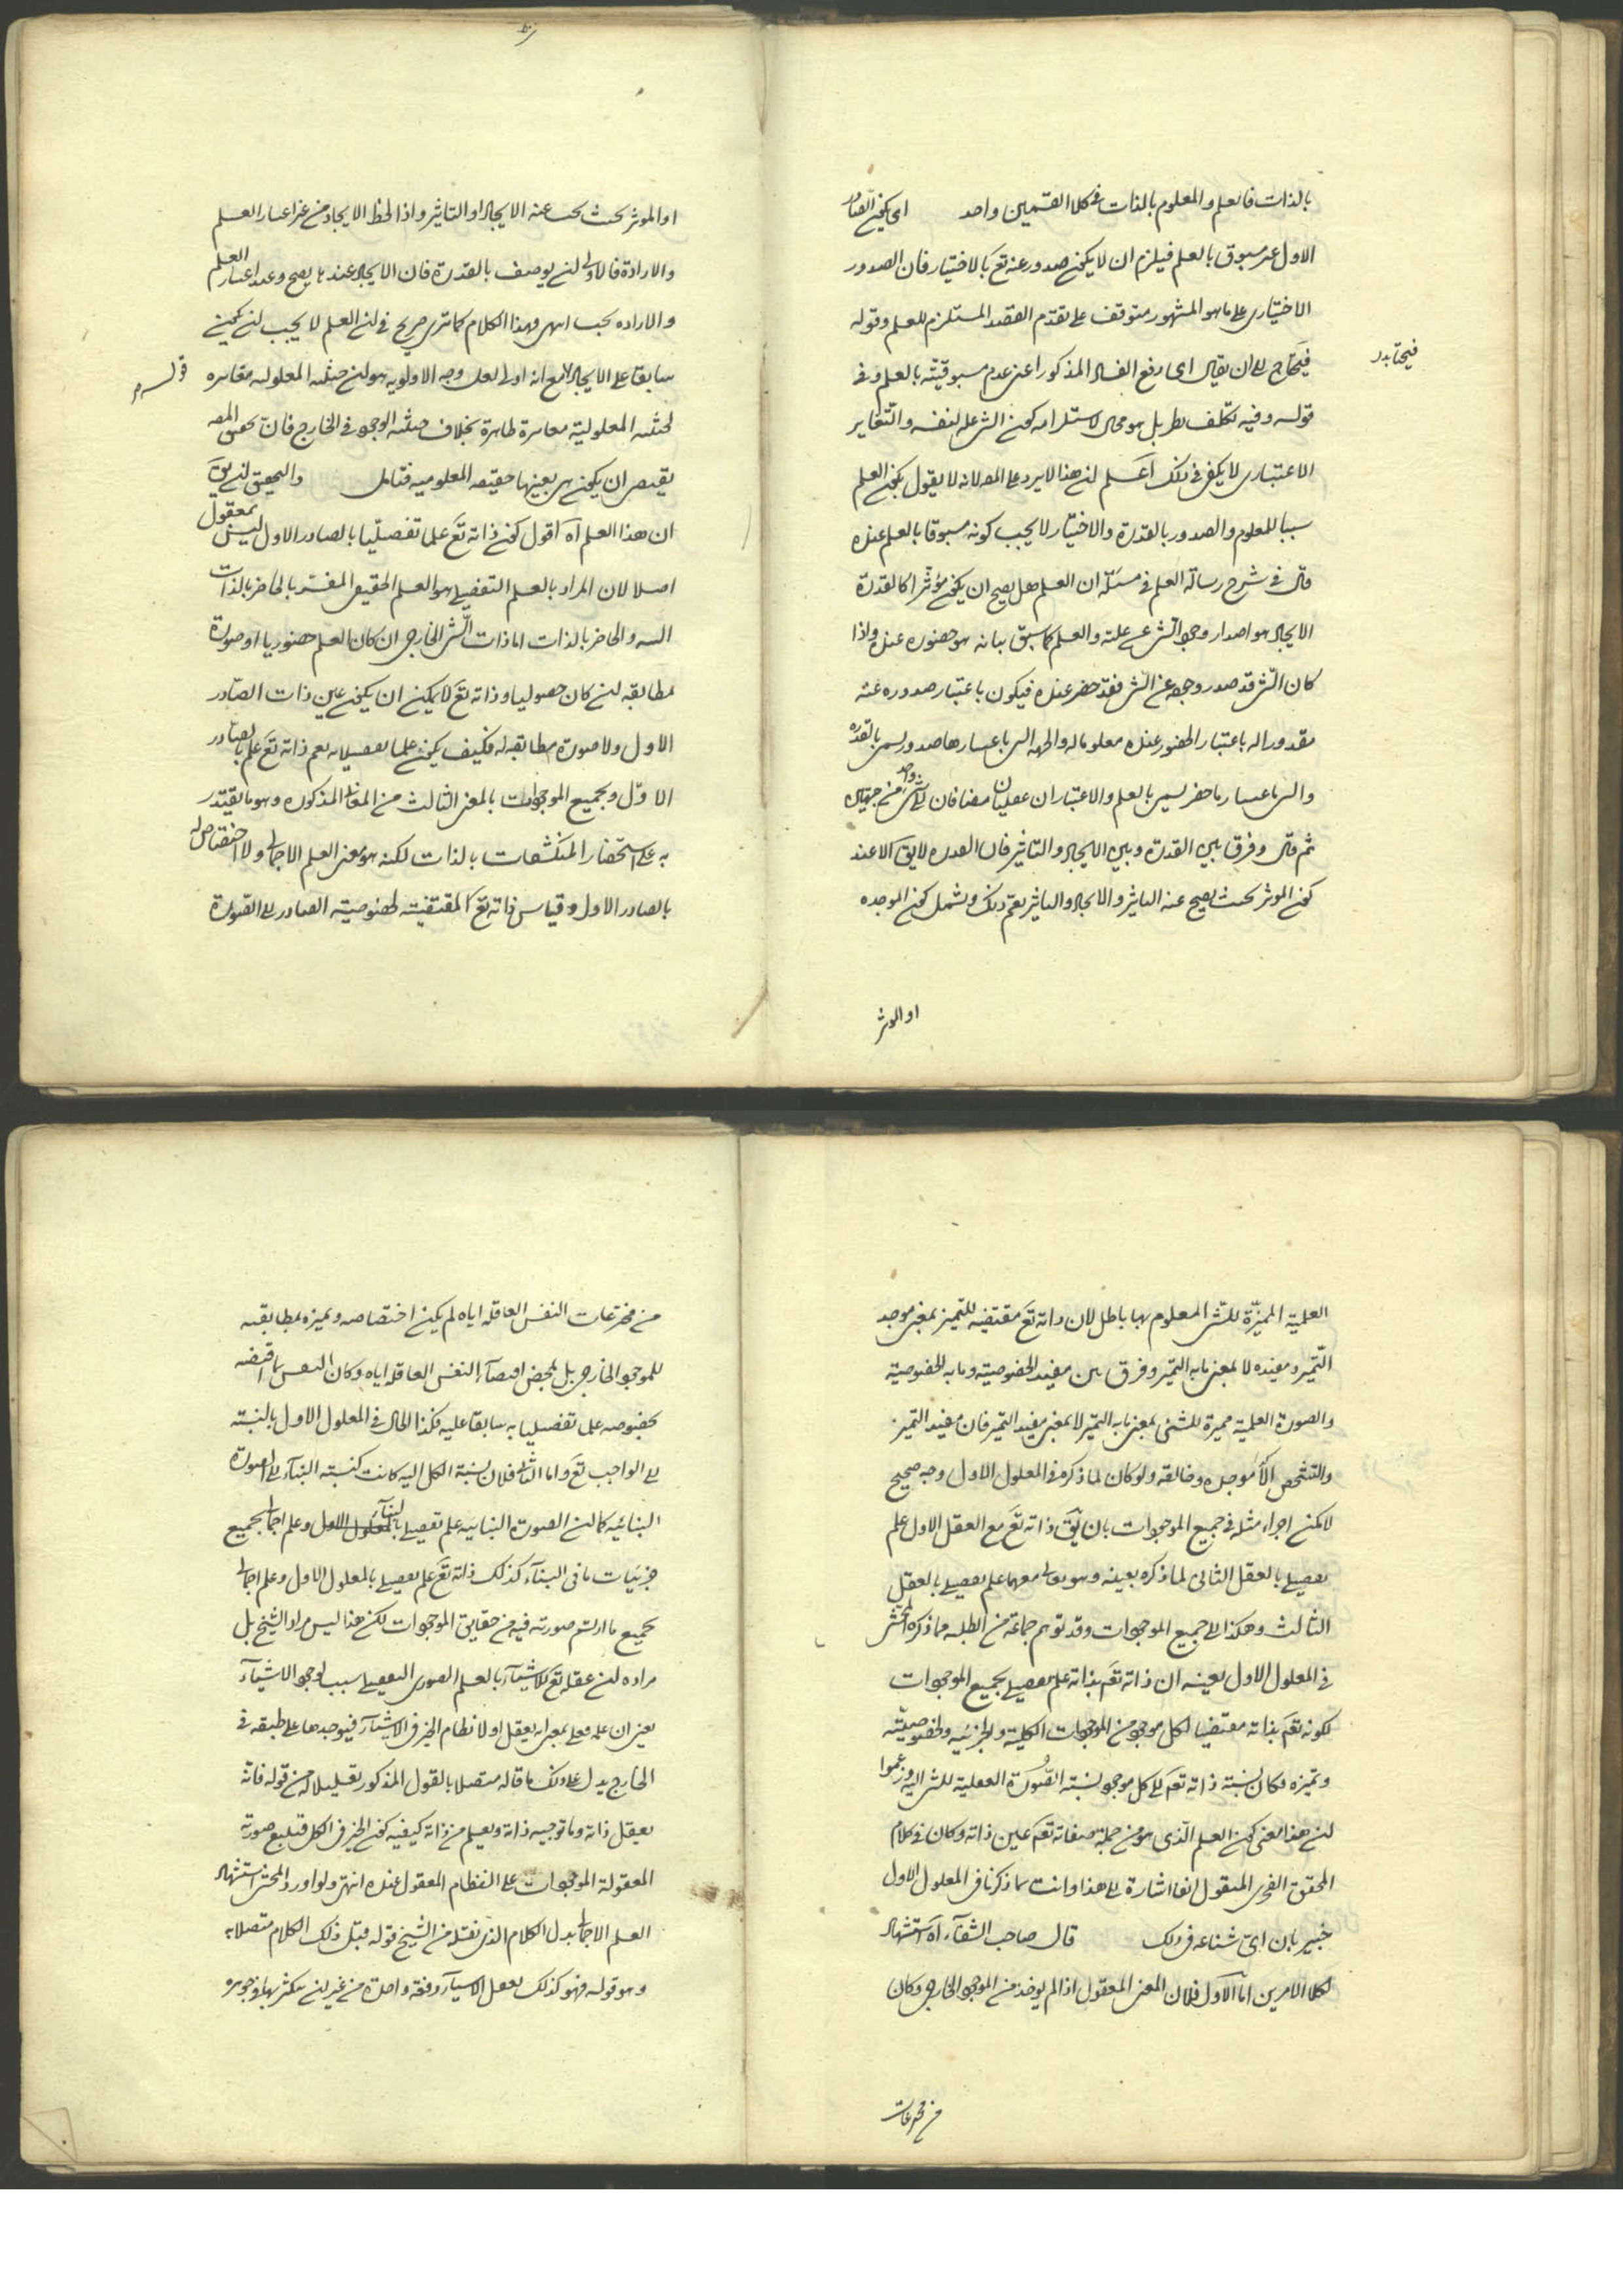 بالذات فالعلم والمعلوم بالذات في كلا القسمين واحد اى يكون الصادر
الاول غير مسبوق بالعلم فيلزم ان لا يكون صدوره عنه تع بالاختيار فان الصدور
الاختيارى على ما هو المشهور متوقف على تقدم القصد المستلزم للعلم وقوله
فيحتاج الى ان يقال اى رفع الفساد المذكور اعنى عدم مسبوقيته بالعلم وفى
قوله وفيه تكلف نظر بل هو محال لاستلزامه كون الشى علة لنفسه والتغاير
الاعتبارى لا يكفى فى ذلك اعلم ان هذا لا يرد على المص لانه لا يقول بكون العلم
سببا للمعلوم والصدور بالقدرة والاختيار لا يجب كونه مسبوقا بالعلم عنده
قال فى شرح رسالة العلم فى مسئلة ان العلم هل يصح ان يكون مؤثرا كالقدرة
الايجاد هو اصدار وجود الشى عن علته والعلم كما سبق بيانه هو حضوره عنده واذا
كان الشى قد صدر وجوده عن الشى فقد حضر عنده فيكون باعتبار صدوره عنه
مقدورا له باعتبار الحضور عنده معلوما له والجهة التى باعتبارها صدور يسمى بالقدرة
والتى باعتبارها حضر يسمى بالعلم والاعتباران عقليان مضافان الى شى واحد من جهتين
ثم قال وفرق بين القدرة وبين الايجاد والتاثير فان القدرة لا يق الا عند
كون الموثر بحيث يصح عنه التاثير والايجاد والتاثير يعم ذلك ويشمل كون الموجده
او الموثر
او الموثر بحيث يجب عنه الايجاد او التاثير واذا لحظ الايجاد من غير اعتبار العلم
والارادة فالاولى ان يوصف بالقدرة فان الايجاد عندها يصح وعند اعتبار العلم
والاراده يجب انتهى وهذا الكلام كما ترى صريح فى ان العلم لا يجب ان يكون
سابقا على الايجاد مع انه اولى لعل وجه الاولوية هو ان حيثية المعلولية مغايرة
قوله
لحيثية المعلومية مغايرة ظاهرة بخلاف حيثية الوجود فى الخارج فان تحقيق المص
يقتضى ان يكون هى بعينها حقيقة المعلومية فتامل والتحقيق ان يق
ان هذا العلم آه اقول كون ذاته تع علما تفصيليا بالصادر الاول ليس بمعقول
اصلا لان المراد بالعلم التفصيلى هو العلم الحقيقى المفسر بالحاضر بالذات
والحاضر بالذات اما ذات الشى الخارجى ان كان العلم حضوريا او صورة
مطابقة ان كان حصوليا وذاته تع لا يمكن ان يكون عين ذات الصادر
الاول ولا صورة مطابقة له فكيف يكون علما تفصيليا به نعم ذاته تع علم بالصادر
الاول وبجميع الموجودات بالمعنى الثالث من المعانى المذكورة وهو ما يقتدر
به على استحضار المنكشفات بالذات لكنه هو معنى العلم الاجمالى ولا اختصاص له
بالصادر الاول وقياس ذاته تع المقتضية لخصوصية الصادر الى الصورة
العلمية المميزة للشى المعلوم بها باطل لان ذاته تع مقتضية للتميز بمعنى موجد
التميز ومفيده لا بمعنى ما به التميز وفرق بين مفيد الخصوصية وما به الخصوصية
والصورة العلمية مميزة للشئ بمعنى ما به التميز لا بمعنى مفيد التميز فان مفيد التميز
والتشخص موجده وخالقه ولو كان لما ذكره فى المعلول الاول وجه صحيح
لامكن اجراء مثله فى جميع الموجودات بان يق ذاته تع مع العقل الاول علم
تفصيلى بالعقل الثانى لما ذكره بعينه وهو تعالى معهما علم تفصيلى بالعقل
الثالث وهكذا الى جميع الموجودات وقد توهم جماعة من الطلبه مما ذكره المحشى
فى المعلول الاول بعينه ان ذاته تعم بذاته علم تفصيلى بجميع الموجودات
لكونه تعم بذاته مقتضيا لكل موجود من الموجودات الكلية والجزئيه ولخصوصيته
وتميزه فكان نسبة ذاته تعم الى كل موجود نسبة الصورة العقلية للشى اليه وزعموا
ان هذا معنى كون العلم الذى هو من جملة صفاته تعم عين ذاته وكان فى كلام
المحقق الفخرى المنقول انفا اشارة الى هذا وانت بما ذكرنا فى المعلول الاول
خبير بان اى شناعه فى ذلك قال صاحب الشفاء آه استشهاد
لكلا الامرين اما الاول فلان المعنى المعقول اذا لم يوخذ من الموجود الخارجى وكان
من مخترعات
من مخترعات النفس العاقلة اياه لم يكن اختصاصه وتميزه بمطابقته
للموجود الخارجى بل بمحض اقتضاء النفس العاقلة اياه وكان النفس باقتضائه
بخصوصه علما تفصيليا به سابقا عليه فكذا الحال فى المعلول الاول بالنسبة
الى الواجب تع واما الثانى فلان نسبة الكل اليه كانت كنسبة البناء الى الصورة
البنائيه كما ان الصورة البنائيه علم تفصيلى بالبناء وعلم اجمالى بجميع
جزئيات ما فى البناء كذلك ذاته تع علم تفصيلى بالمعلول الاول وعلم اجمالى
بجميع ما ارتسم صورته فيه من حقايق الموجودات لكن هذا ليس مراد الشيخ بل
مراده ان عقله تع للاشياء بالعلم الصورى التفصيلى سبب لوجود الاشياء
يعنى ان علمه فعلى بمعنى انه يعقل اولا نظام الخير فى الاشياء فيوجدها على طبقه فى
الخارج يدل على ذلك ما قاله متصلا بالقول المذكور تعليلا من قوله فانه
يعقل ذاته وما توجبه ذاته ويعلم من ذاته كيفية كون الخير فى الكل فتتبع صورته
المعقولة الموجودات على النظام المعقول عنده انتهى ولو اورد المحشى استشهاد
العلم الاجمالى بدل الكلام الذى نقله من الشيخ قوله قبل ذلك الكلام متصلا به
وهو قوله فهو كذلك يعقل الاشياء دفعة واحدة من غير ان يتكثر بها فى جوهره